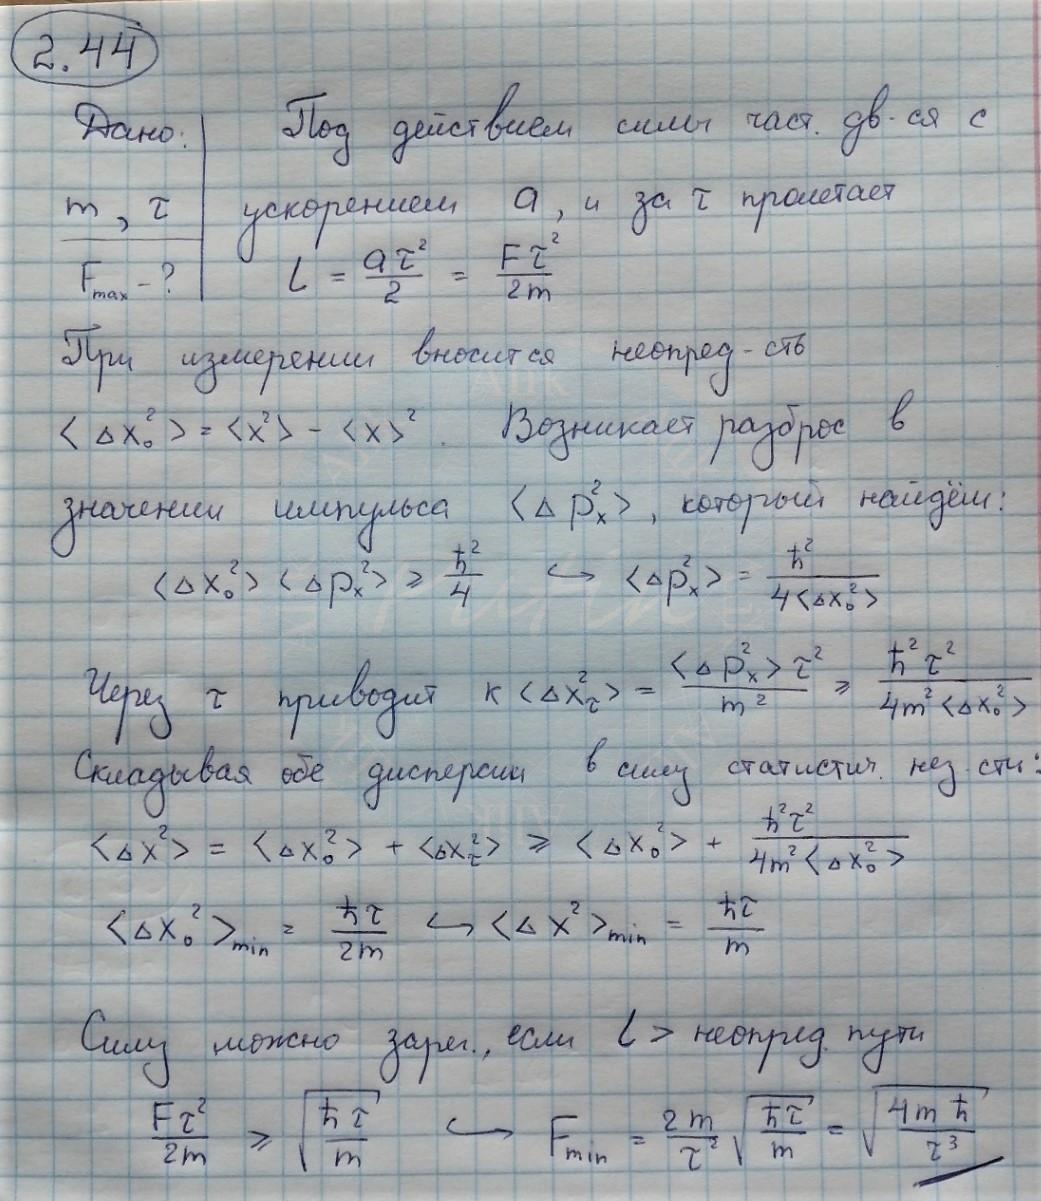 2.44
Дано:
m, τ
F_max - ?
Под действием силы част. дв-ся с
ускорением a, и за τ пролетает
L = aτ²/2 = Fτ²/2m
При измерении вносится неопред-сть
<Δx₀²> = <x²> - <x>². Возникает разброс в
значении импульса <Δpₓ²>, который найдём:
<Δx₀²><Δpₓ²> ≥ ħ²/4 ↪ <Δpₓ²> = ħ²/4<Δx₀²>
Через τ приводит к <Δx_τ²> = <Δpₓ²>τ²/m² ≥ ħ²τ²/4m²<Δx₀²>
Складывая обе дисперсии в силу статистич. нез-сти:
<Δx²> = <Δx₀²> + <Δx_τ²> ≥ <Δx₀²> + ħ²τ²/4m²<Δx₀²>
<Δx₀²>min = ħτ/2m ↪ <Δx²>min = ħτ/m
Силу можно зарег., если L > неопред. пути
Fτ²/2m ≥ √(ħτ/m) ↪ F_min = 2m/τ² √(ħτ/m) = √(4mħ/τ³)